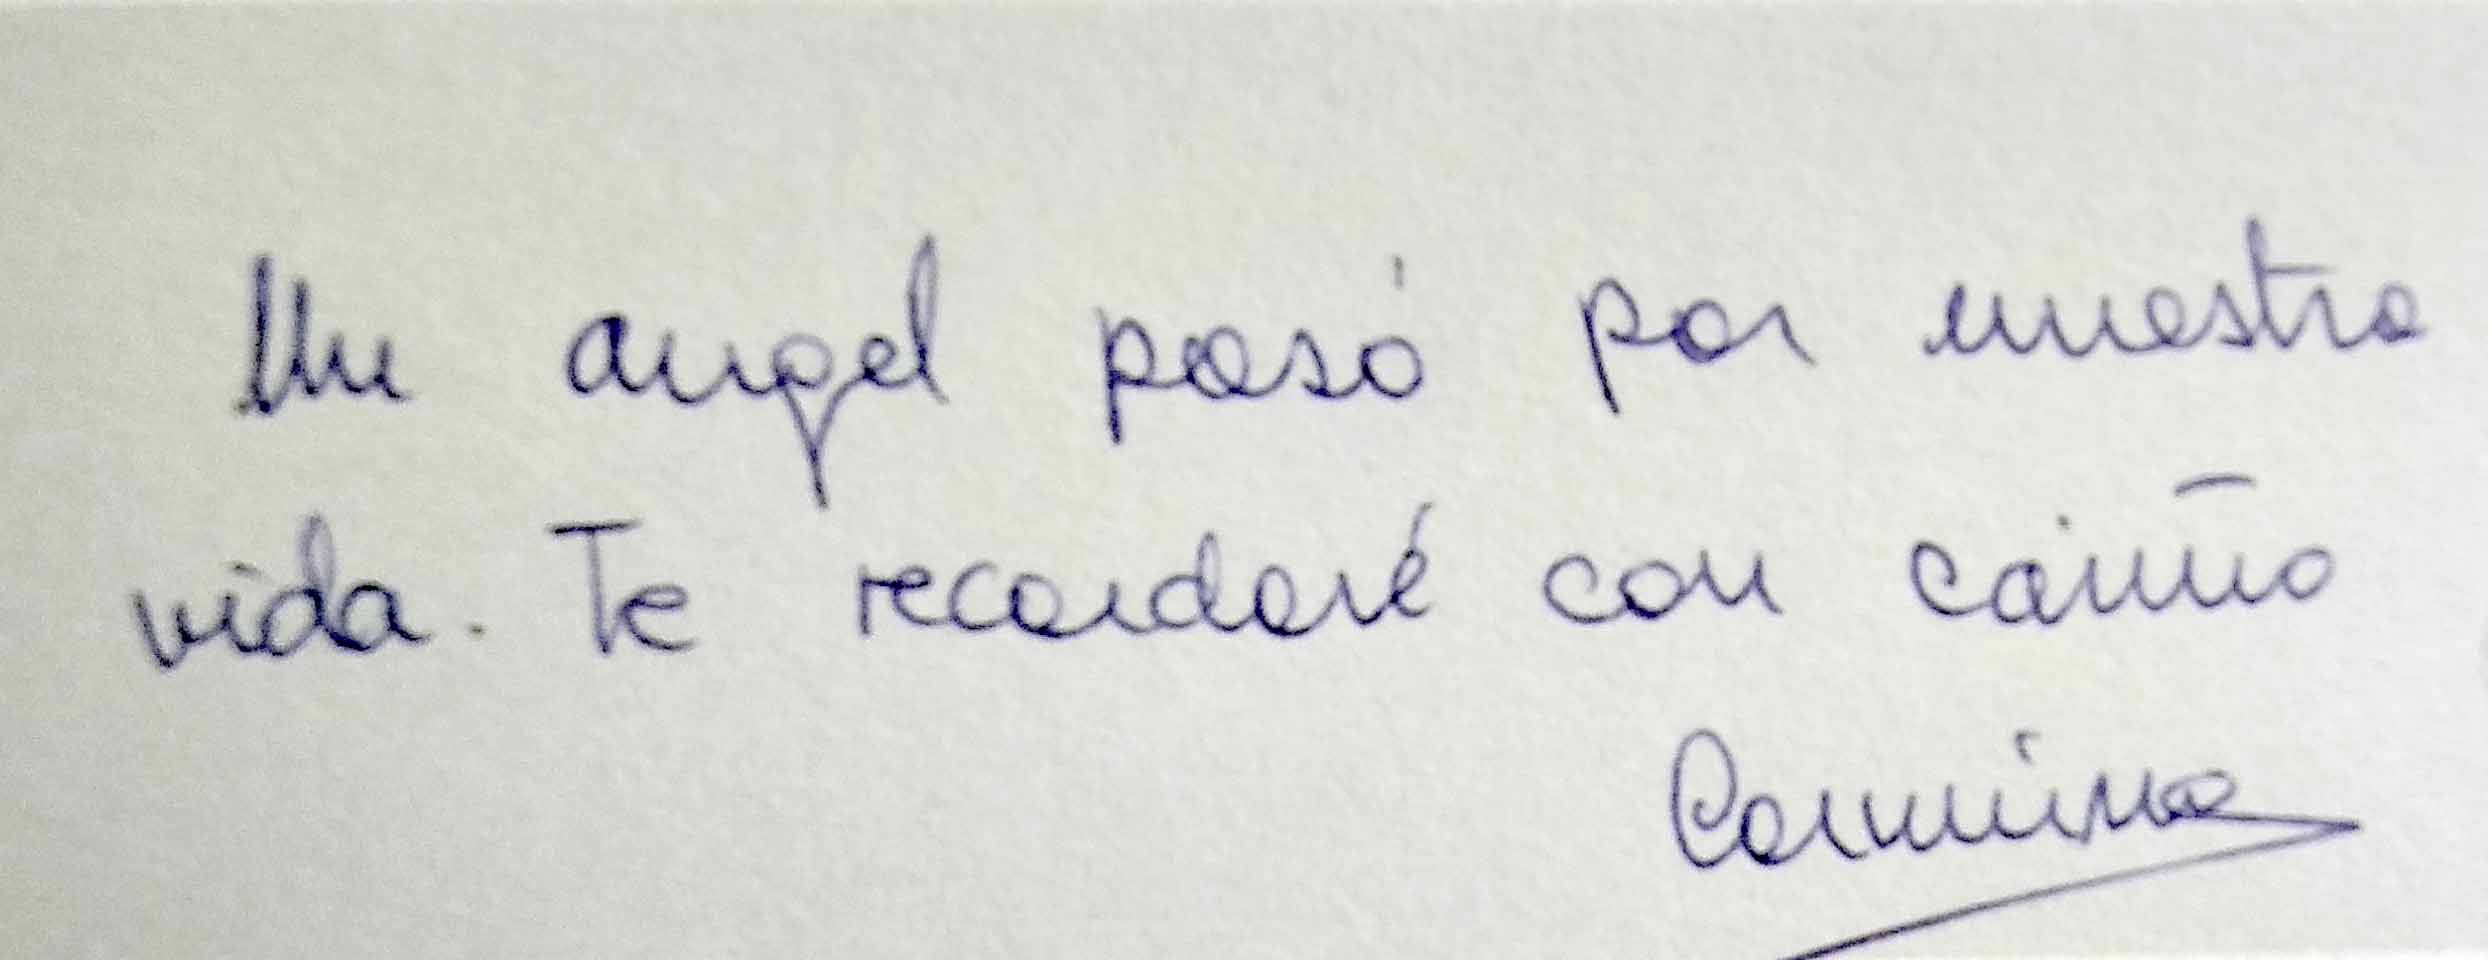 Un angel pasó por nuestra
vida. Te recordaré con cariño
Carmina